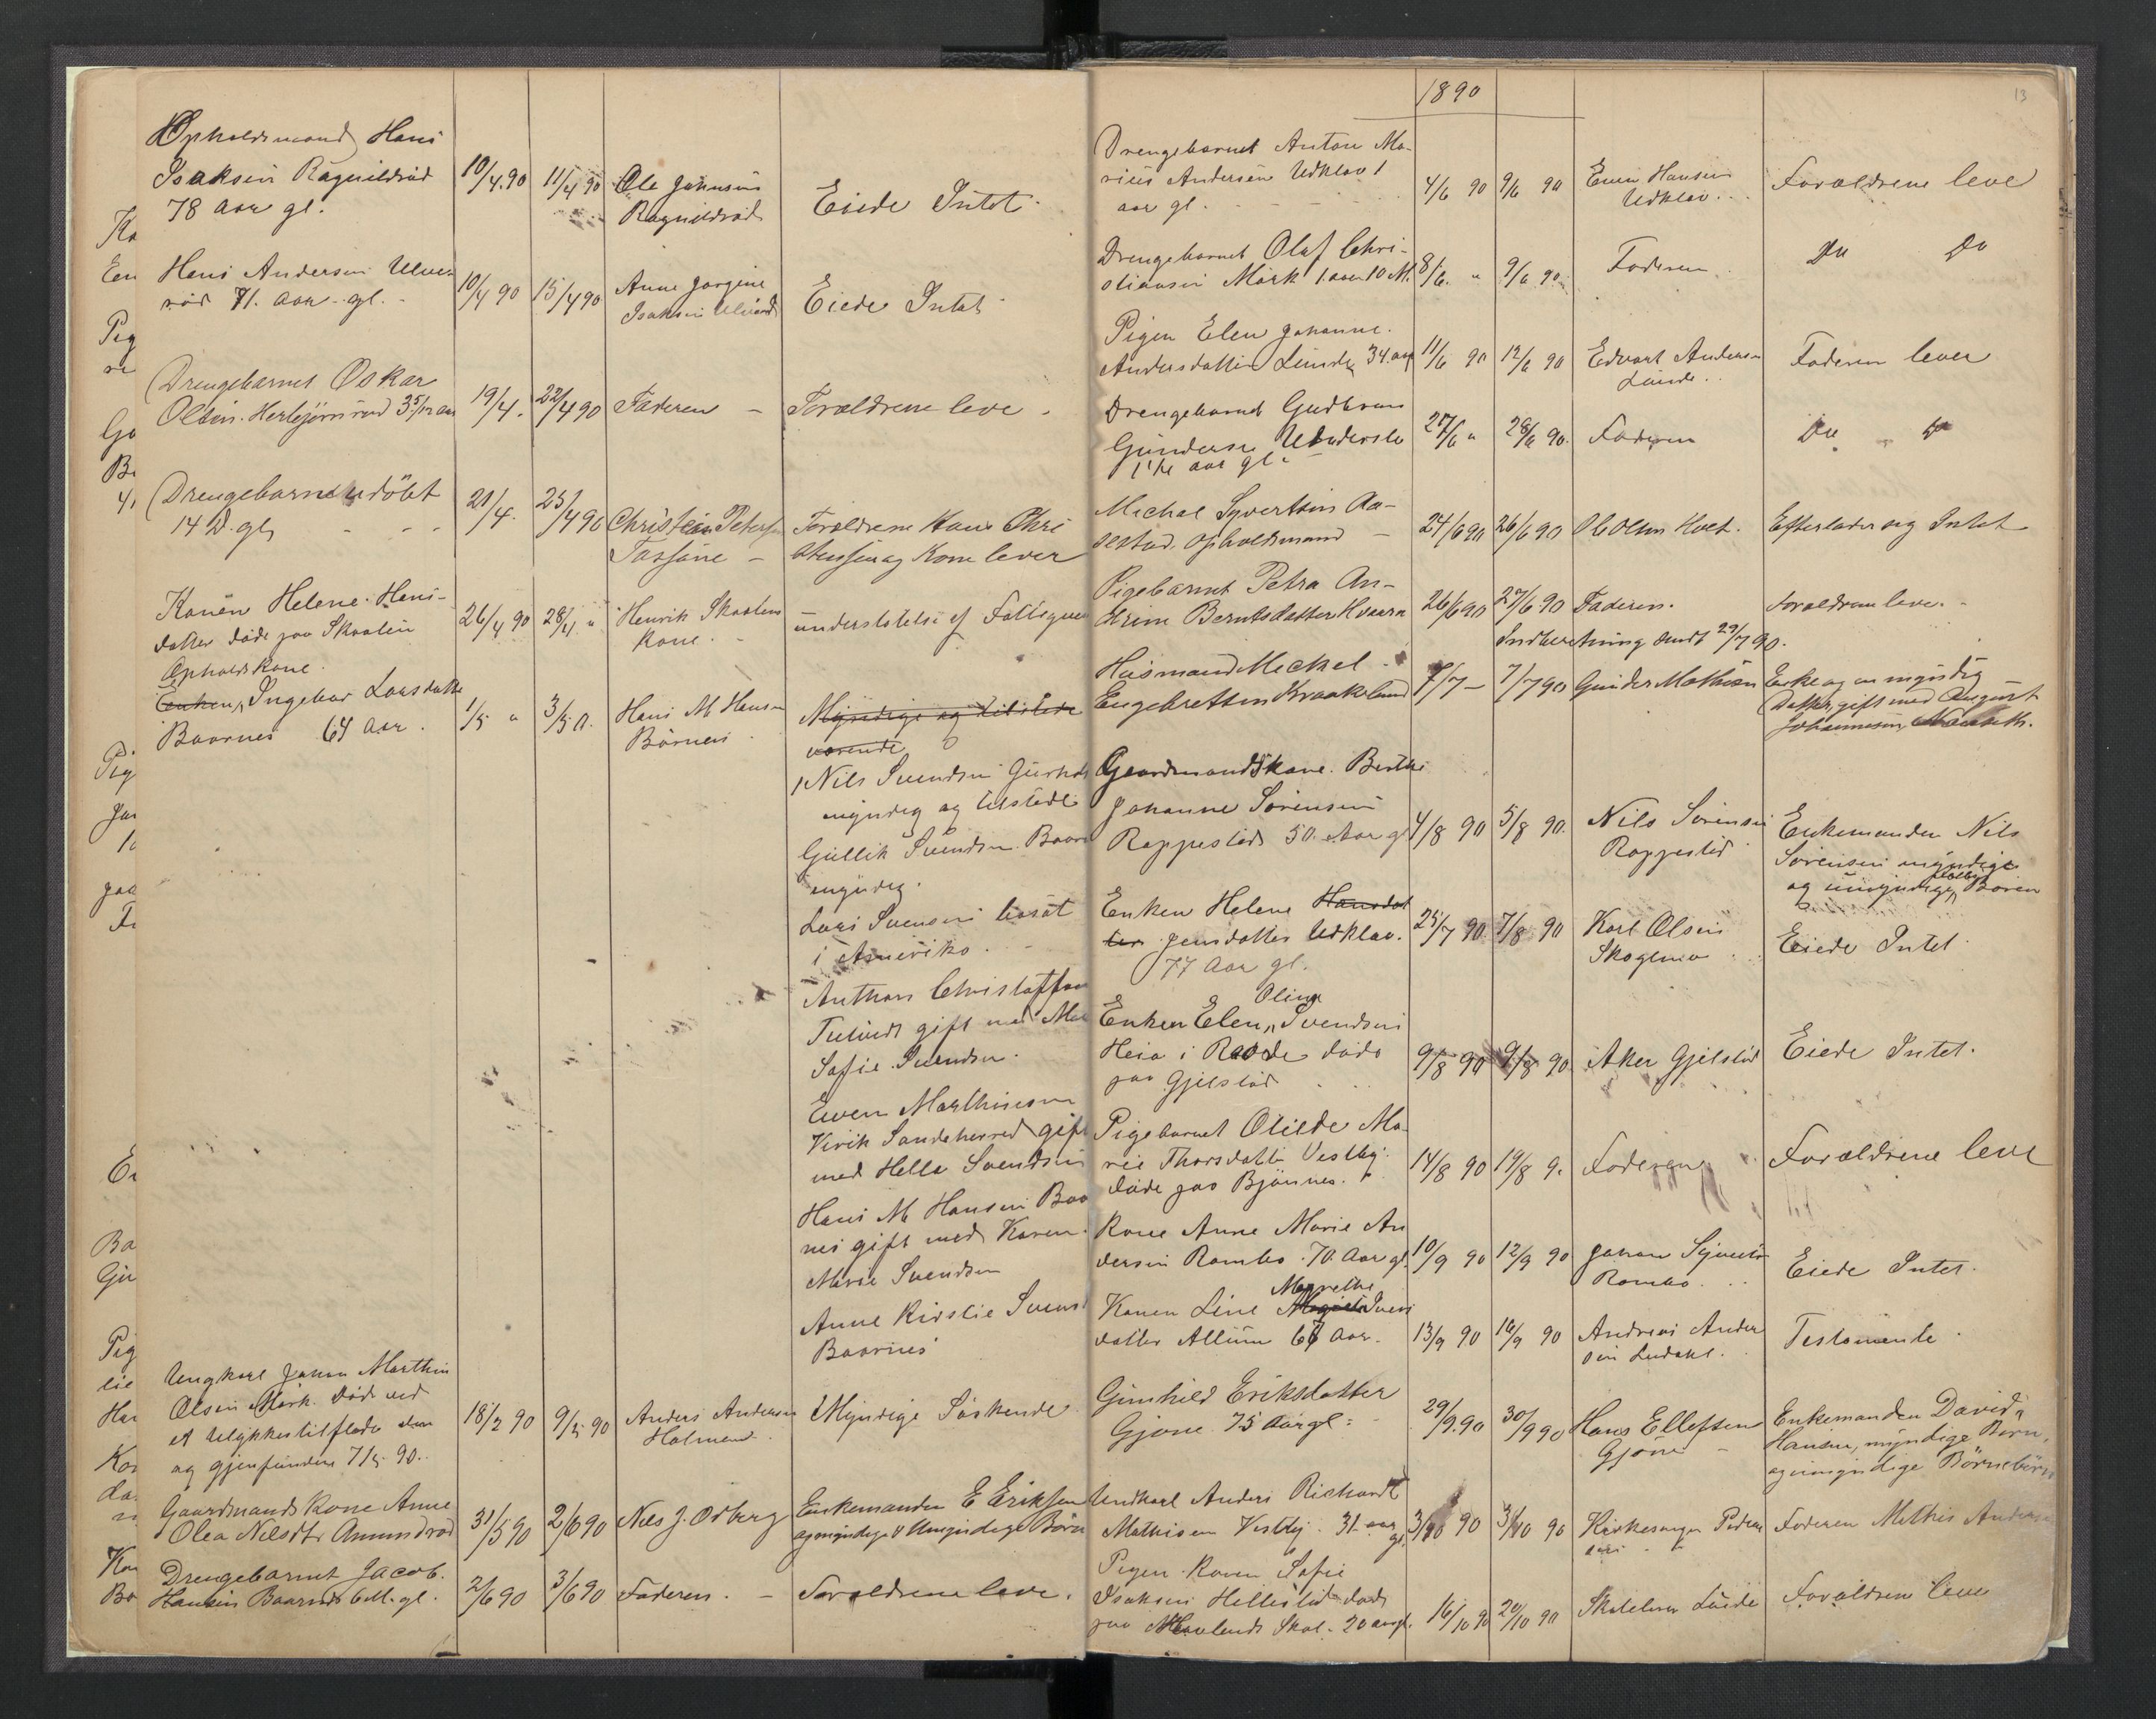 Opholdsmand Hans
Isaksen Ragnildrød
78 aar gl.
10/4.90
11/4 90
Ole Johnsen
Ragnildrød
Eiede Intet.
Hans Andersen Ulve-
rød 71. aar gl. -
10/4 90
15/4 90
Anne Jorgine
Isaksen
Eiede Intet
Drengebarnet Oskar
Olsen. Herbjørnsrød 3 5/12 aar
19/4.
22/4 90
Faderen -
Forældrene leve.
Drengebarn udöbt
14 D. gl.
21/4.
25/4 90
Christian Peters
Foreldrene Hans Chri
stensen og Kone lever
Konen Helene Hans-
datter döde paa Skaalen
Opholdskone.
26/4 90
28/4. "
Henrik Skaalens
Kone.
understötelse af
Enken, Ingebor Larsdatter
Baarnes 64 aar.
1/5 "
3/5 "
Hans M Hansen
Börnes
Myndige og tilstede
værende
1 Nils Svendsen
myndig og tilstede
Gullik Svendsen Baar
myndig.
Lars Svensen bosat
i Ameriko.
Anthon Christoffer
gift med
Sofie Svendsen.
Even Marthinsen
Virik Sandeherred gift
med Hella Svendsen
Hans M Hansen Baa
nes gift med Karen
Marie Svendsen
Anne Kirstie Svens
Baarnes
Ungkarl Johan Marthin
Olsen Mörk. Död ved
et Ulykkestilfelde
og gjenfunden 7/5 90.
18/2 90
9/5 90
Anders Andersen
Holmen
Myndige Söskende
Gaardmands Kone Anne
Olea Nilsdtr Amundrød
31/5 90
2/6 90
Nils J. Odberg
Enkemanden E Eriksen
og myndige & Umyndige Börn
Drengebarnet Jacob.
Hansen Baarnes 6 M. gl.
2/6 90
3/6 90
Faderen. -
Foreldrene leve.
1890
13
Drengebarnet Anton Ma-
rius Andersen Udklav 1
aar gl.
4/6 90
9/6 90
Even Hansen
Udklav.
Forældrene leve
Drengebarnet Olaf Chri-
stiansen Mörk 1. aar 10 M.
8/6. "
9/6 90.
Faderen
Do
Do
Pigen Elen Johanne.
Andersdatter Lunde 34. aar
11/6 90
12/6 90
Edvart Andersen
Lunde.
Faderen lever
Drengebarnet Gudbran
Gundersen
1 1/2 aar gl.
27/6 "
28/6 90.
Faderen
Do
Do
Michal Syvertsen Aa-
sestad. Opholdsmand -
24/6 90
26/6 90
Ol Olsen Hvet.
Efterlader sig Intet
Pigebarnet Petra An-
drine Berntsdatter Kvarn
26/6 90
27/6 90
Faderen.
Forældrene leve. -
Indberetning sendt 29/7 90.
Husmand Meckel
Engebretsen Kraakelund
7/7 -
7/7 90
Gunder Mathisen
Enke og en myndig
Datter, gift med August
Johannesen
Gaardmandskone. Berthe
Johanne Sörensen
Rappestad 50. Aar gl
4/8 90
5/8 90.
Nils Sörensen
Rappestad
Enkemanden Nils
Sörensen myndige
og umyndige Börn
Enken Helene Hansdat
ter Jensdatter Udklav.
77 Aar gl.
25/7 90
7/8 90
Karl Olsen
Eiede Intet.
Oline
Enken Elen " Svendsen
Heia i Raade döde
paa Gjelstad
9/8 90
9/8 90.
Aker Gjelstad
Eiede Intet.
Pigebarnet Otilde Ma-
rie Thorsdatter Vestby.
döde paa Bjönnes.
14/8 90
19/8 9.
Faderen
Forældrene leve
Kone Anne Marie An
dersen Rambo. 70. Aar gl.
10/9 90
12/9 90
Johan Syverts
Rambo.
Eiede Intet.
Marrethe
Konen Line
datter Allum 67 Aar.
13/9 90
16/9 90
Andreas Ander
sen
Testamente
Gunhild Eriksdatter
Gjone 75 Aar gl.
29/9.90
30/9 90
Hans Ellefsen
Gjöne -
Enkemanden David
Hansen, myndige Børn,
og umyndige Börnebörn
Undkarl Anders Richardt
Mathisen Vestby. 31. aar
gl.
3/10 90
3/10 90
Kirkesanger Peder
sen
Faderen Mathis Anders
Pigen Karen Sofie
Isaksen Hellestad döde
paa Skol. 20 aar gl.
16/10 90
20/10 90
Skolelærer Lunde
Forældrene leve